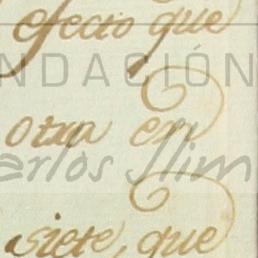 efecto que
FUNDACIÓN
otra en
Carlos Slim
siete, que